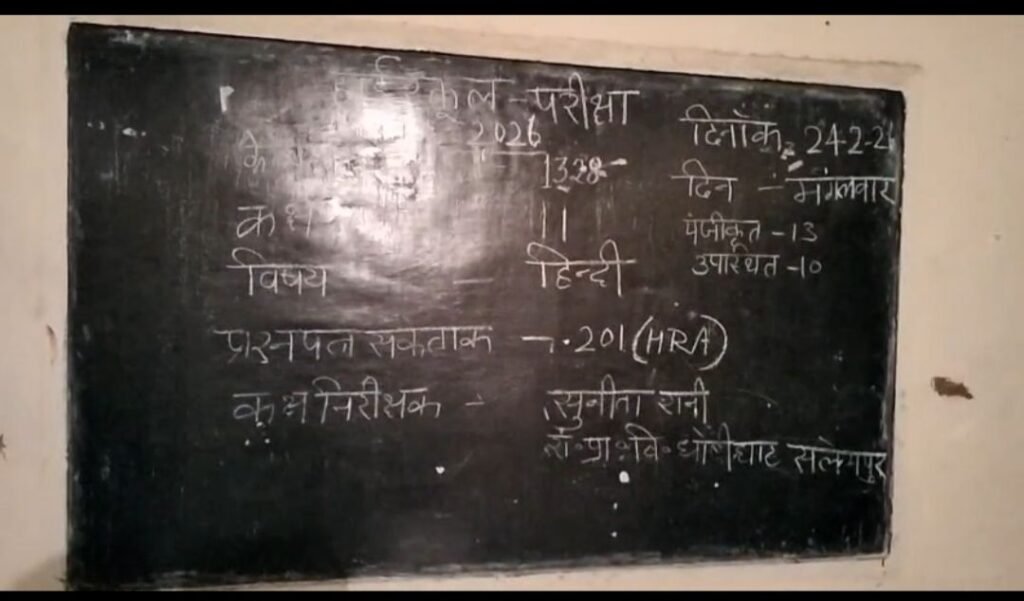 हाईस्कूल - परीक्षा
2026
दिनाँक 24-2-26
1328
दिन - मंगलवार
11
पंजीकृत - 13
उपस्थित - 10
विषय - हिन्दी
प्रश्नपत्र सकताक - 201 (HRA)
कक्ष निरीक्षक - सुनीता रानी
प्रा॰ वि॰ धोबीघाट सलेमपुर